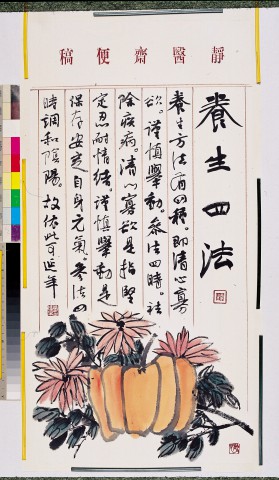 靜醫齋便稿
養生四法
養生方法有四種。即清心寡
欲。謹慎舉動。叅法四時。祛
除疾病。清心寡欲是指堅
定忍耐情緒。謹慎舉動是
保存安養自身元氣。叅法四
時調和陰陽。故依此可延年